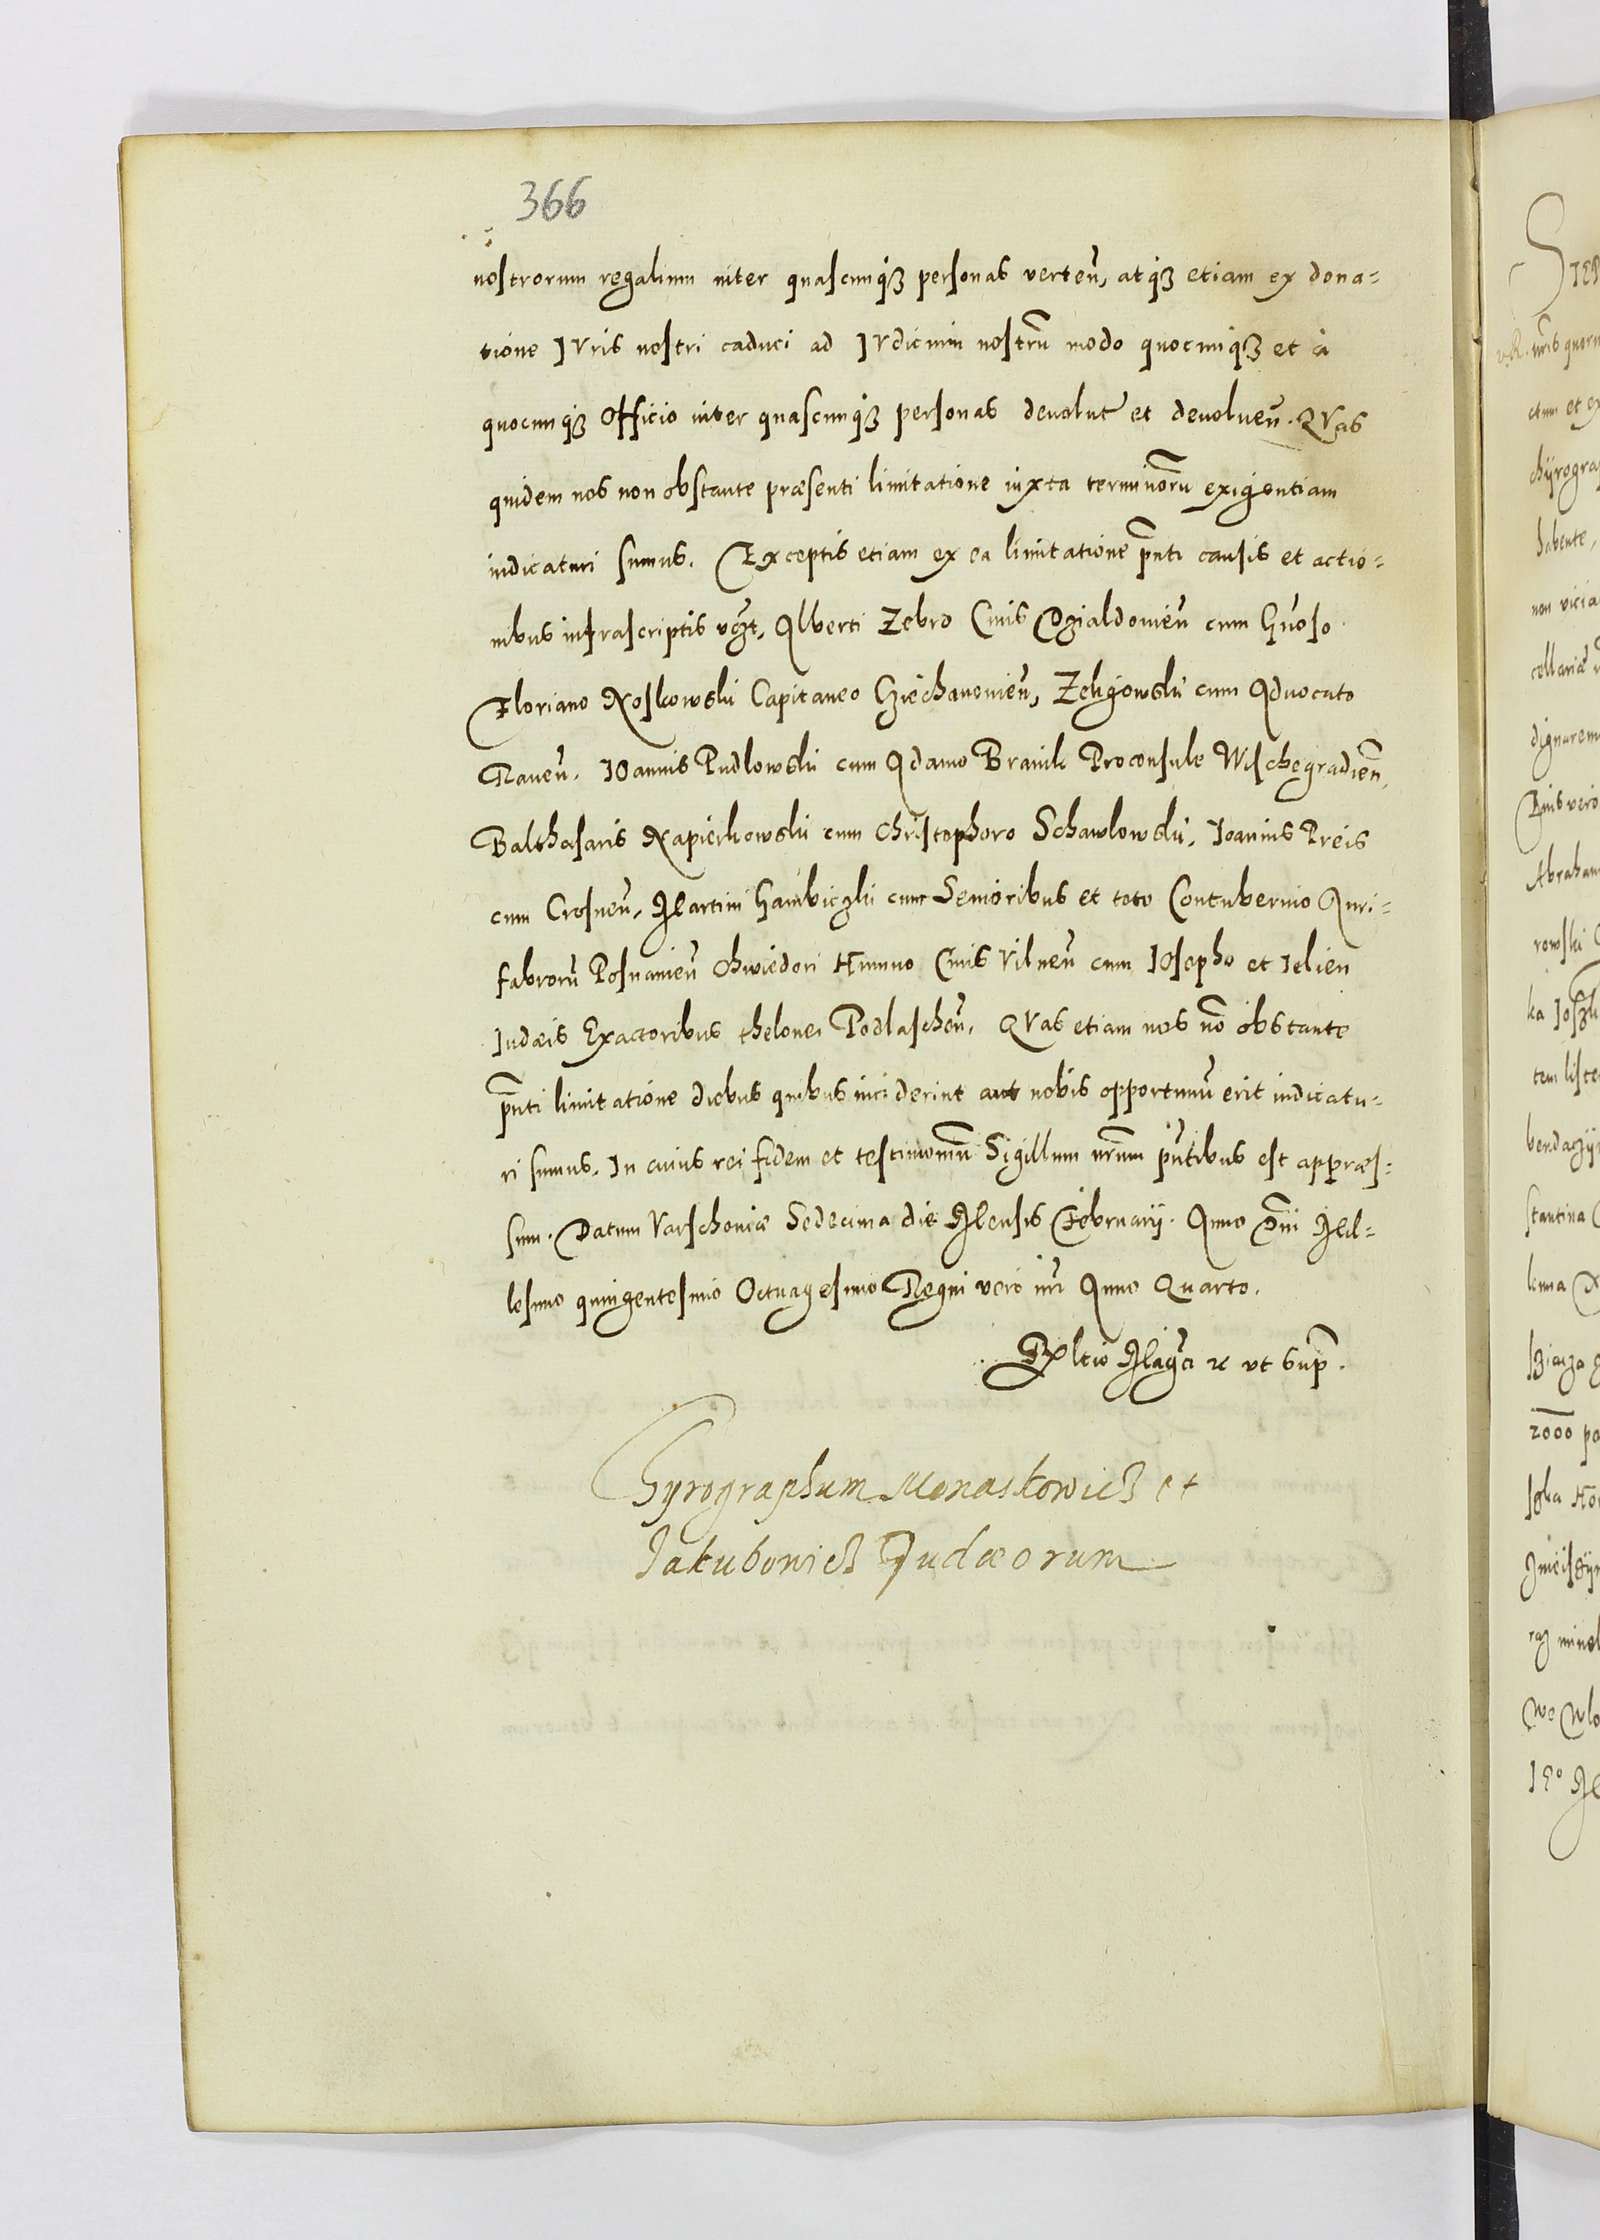 366
nostrorum regalium inter quascunqȝ personas verteñ, atqȝ etiam ex dona=
tione Iuris nostri caduci ad Iudicium nostrũ modo quocunqȝ et à
quocunqȝ Officio inter quascunqȝ personas devolut et devolueñ. QVas
quidem nos non obstante præsenti limitatione iuxta terminorũ exigentiam
iudicaturi sumus. Exceptis etiam ex ea limitatione pñti causis et actio=
nibus infrascriptis vcȝt, Alberti Zebro Ciuis Dzialdouieñ cum Gñoso
Floriano Noskowski Capitaneo Cziechanouieñ, Zeligowski cum Aduocato
Raueñ. IOannis Pudlowski cum Adamo Pro­consule Wischegradieñ,
Balthasaris Napierkowski cum Christophoro Schawlowski, Ioannis Preis
cum Crosneñ, Martini cum Senioribus et toto Contubernio Auri=
fabrorũ Posnanieñ Ciuis Vilneñ cum IOsepho et Ielien
Iudæis Exactoribus thelonei Podlascheñ, QVas etiam nos nõ obstante
pñti limitatione diebus quibus inciderint aut nobis opportunũ erit iudicatu=
ri sumus. In cuius rei fidem et testimoniũ Sigillum nrum pñtibus est appræs=
sum. Datum Varschouiæ Sedecima die Mensis Februarij. Anno Dñi Mil=
lesimo quingentesimo Octuagesimo Regni vero nri Anno Quarto.
Rltio Magci ut sup.
Chyrographum Monaskowicȝ et
Jakubowicȝ Judæorum